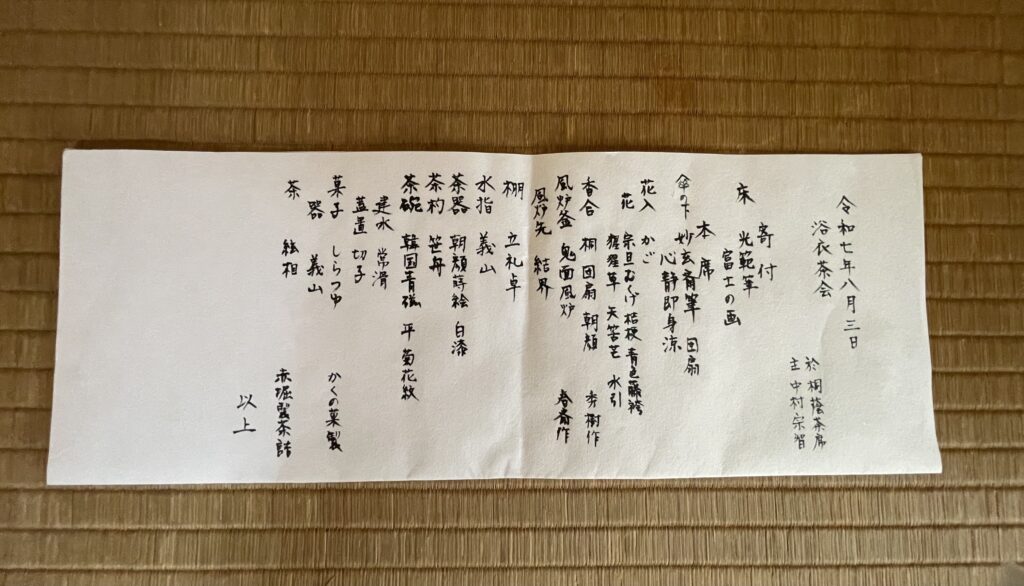 令和七年八月三日
浴衣茶会
於 桐蔭茶席
主 中村宗習
寄付
床 光範筆
富士の画
本席
傘の下 妙玄斎筆 団扇
心静即身涼
花入 かご
花 宗旦むくげ 桔梗 青色藤袴
猩猩草 矢筈芒 水引
香合 桐団扇 朝顔 李樹作
風炉釜 鬼面風炉 春斎作
風炉先 結界
棚 立礼卓
水指 義山
茶器 朝顔蒔絵 白漆
茶杓 笹舟
茶碗 韓国青磁 平 菊花紋
建水 常滑
蓋置 切子
菓子 しらつゆ かくの菓製
器 義山
茶 絵相 赤堀製茶詰
以上